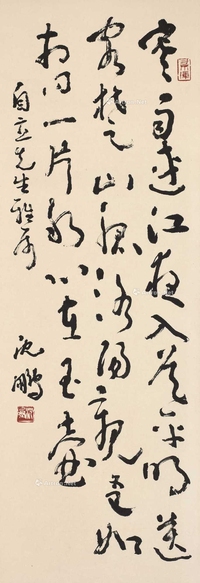 寒雨連江夜入吳平明送
客楚山孤洛陽親友如
相問一片冰心在玉壺
自立先生雅屬
沈鵬